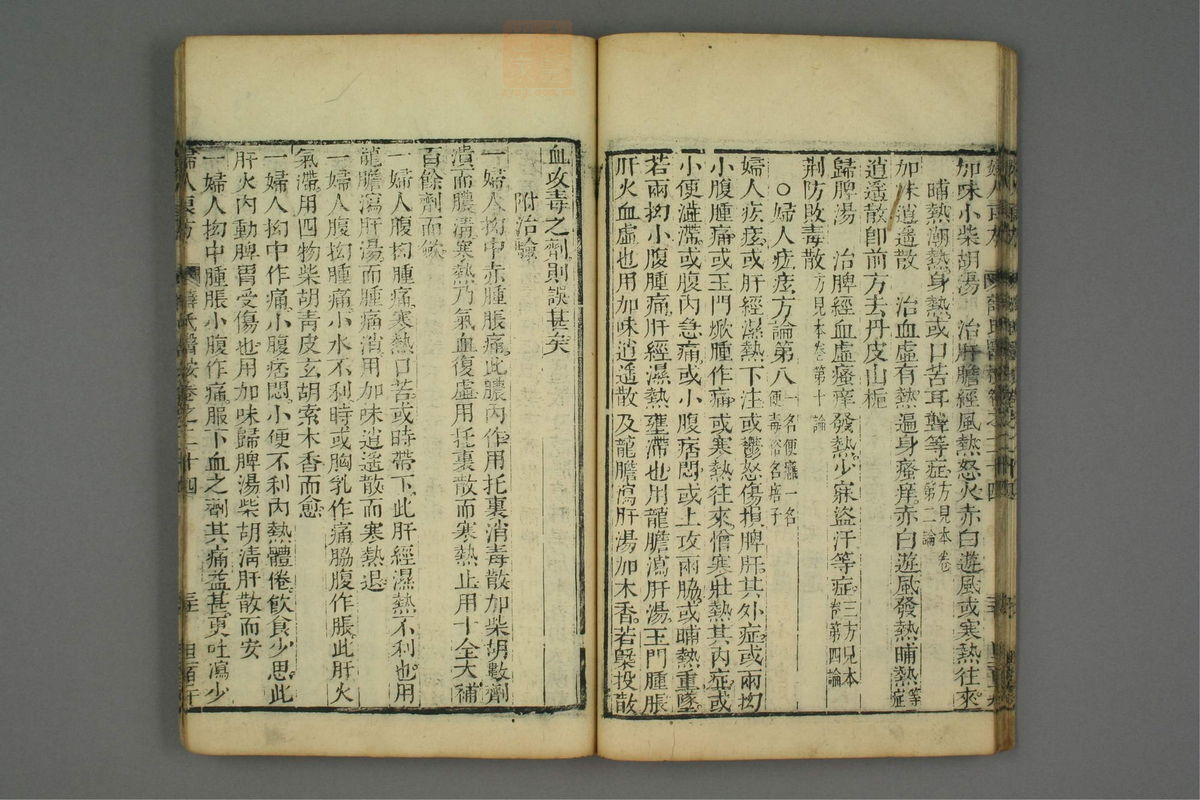 加味小柴胡湯　治肝膽經風熱怒火赤白遊風或寒熱往來
晡熱潮熱身熱或口苦耳聾等症方見本卷第二論
加味逍遥散　治血虛有熱遍身瘙痒赤白遊風發熱晡熱等症
逍遥散即前方去丹皮山梔
歸脾湯　治脾經血虛瘙痒發熱少寐盜汗等症三方見本卷第四論
荆防敗毒散方見本卷第十論
○婦人疙痃方論第八一名便癰一名便毒俗名㾦子
婦人疾痃或肝經濕熱下注或鬱怒傷損脾肝其外症或兩拗
小腹腫痛或玉門焮腫作痛或寒熱往來憎寒壯熱其內症或
小便澁滯或腹內急痛或小腹痞悶或上攻兩脇或晡熱重墜
若兩拗小腹腫痛肝經濕熱壅滯也用龍膽瀉肝湯玉門腫脹
肝火血虛也用加味逍遥散及龍膽瀉肝湯加木香若槩投散
血攻毒之劑則誤甚矣
附治驗
一婦人拗中赤腫脹痛此膿內作用托裏消毒散加柴胡數劑
潰而膿清寒熱乃氣血復虛用托裏散而寒熱止用十全大補
百餘劑而䬲
一婦人腹拗腫痛寒熱口苦或時帶下此肝經濕熱不利也用
龍膽瀉肝湯而腫痛消用加味逍遥散而寒熱退
一婦人腹拗腫痛小水不利時或胸乳作痛脇腹作脹此肝火
氣滯用四物柴胡青皮玄胡索木香而愈
一婦人拗中作痛小腹痞悶小便不利內熱體倦飲食少思此
肝火內動脾胃受傷也用加味歸脾湯柴胡清肝散而安
一婦人拗中腫脹小腹作痛服下血之劑其痛益甚更吐瀉少
婦人良方　薛氏醫按卷之二十四